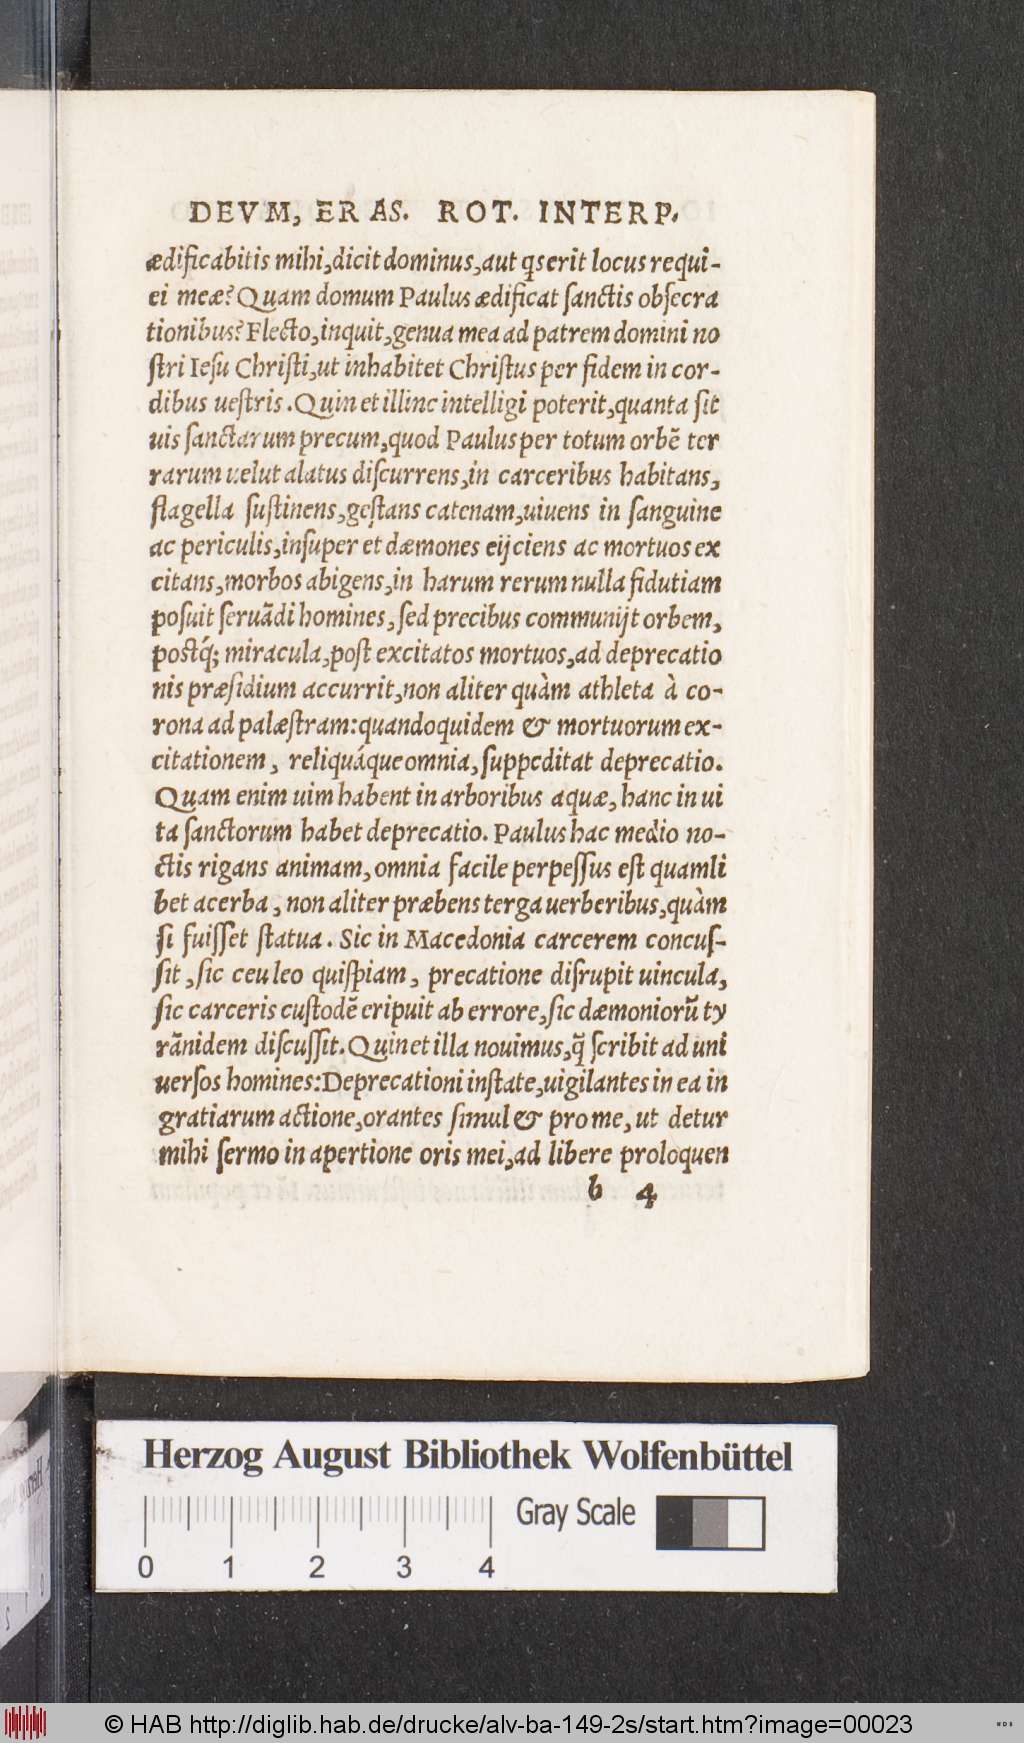 DEVM, ERAS. ROT. INTERP.
ædificabitis mihi,dicit dominus,aut qs erit locus requi-
ei meæ? Quam domum Paulus ædificat ſanctis obſecra
tionibus? Flecto,inquit,genua mea ad patrem domini no
ſtri Ieſu Chriſti,ut inhabitet Chriſtus per fidem in cor-
dibus ueſtris. Quin et illinc intelligi poterit,quanta ſit
uis ſanctarum precum,quod Paulus per totum orbē ter
rarum velut alatus diſcurrens,in carceribus habitans,
flagella ſuſtinens,geſtans catenam,uiuens in ſanguine
ac periculis,inſuper et dæmones eijciens ac mortuos ex
citans,morbos abigens,in harum rerum nulla fidutiam
poſuit ſeruādi homines, ſed precibus communijt orbem,
postq́; miracula,poſt excitatos mortuos,ad deprecatio
nis præſidium accurrit,non aliter quàm athleta à co-
rona ad palæſtram:quandoquidem & mortuorum ex-
citationem, reliquáque omnia, ſuppeditat deprecatio.
Quam enim uim habent in arboribus aquæ, hanc in ui
ta ſanctorum habet deprecatio. Paulus hac medio no-
ctis rigans animam, omnia facile perpeſſus eſt quamli
bet acerba, non aliter præbens terga uerberibus,quàm
ſi fuiſſet ſtatua. Sic in Macedonia carcerem concuſ-
ſit, ſic ceu leo quiſpiam, precatione diſrupit uincula,
ſic carceris cuſtodē eripuit ab errore, ſic dæmoniorū ty
rānidem diſcuſſit. Quin et illa nouimus,q̄ ſcribit ad uni
uerſos homines: Deprecationi inſtate,uigilantes in ea in
gratiarum actione,orantes ſimul & pro me, ut detur
mihi ſermo in apertione oris mei,ad libere proloquen
b 4
Herzog August Bibliothek Wolfenbüttel
Gray Scale
0 1 2 3 4
© HAB http://diglib.hab.de/drucke/alv-ba-149-2s/start.htm?image=00023